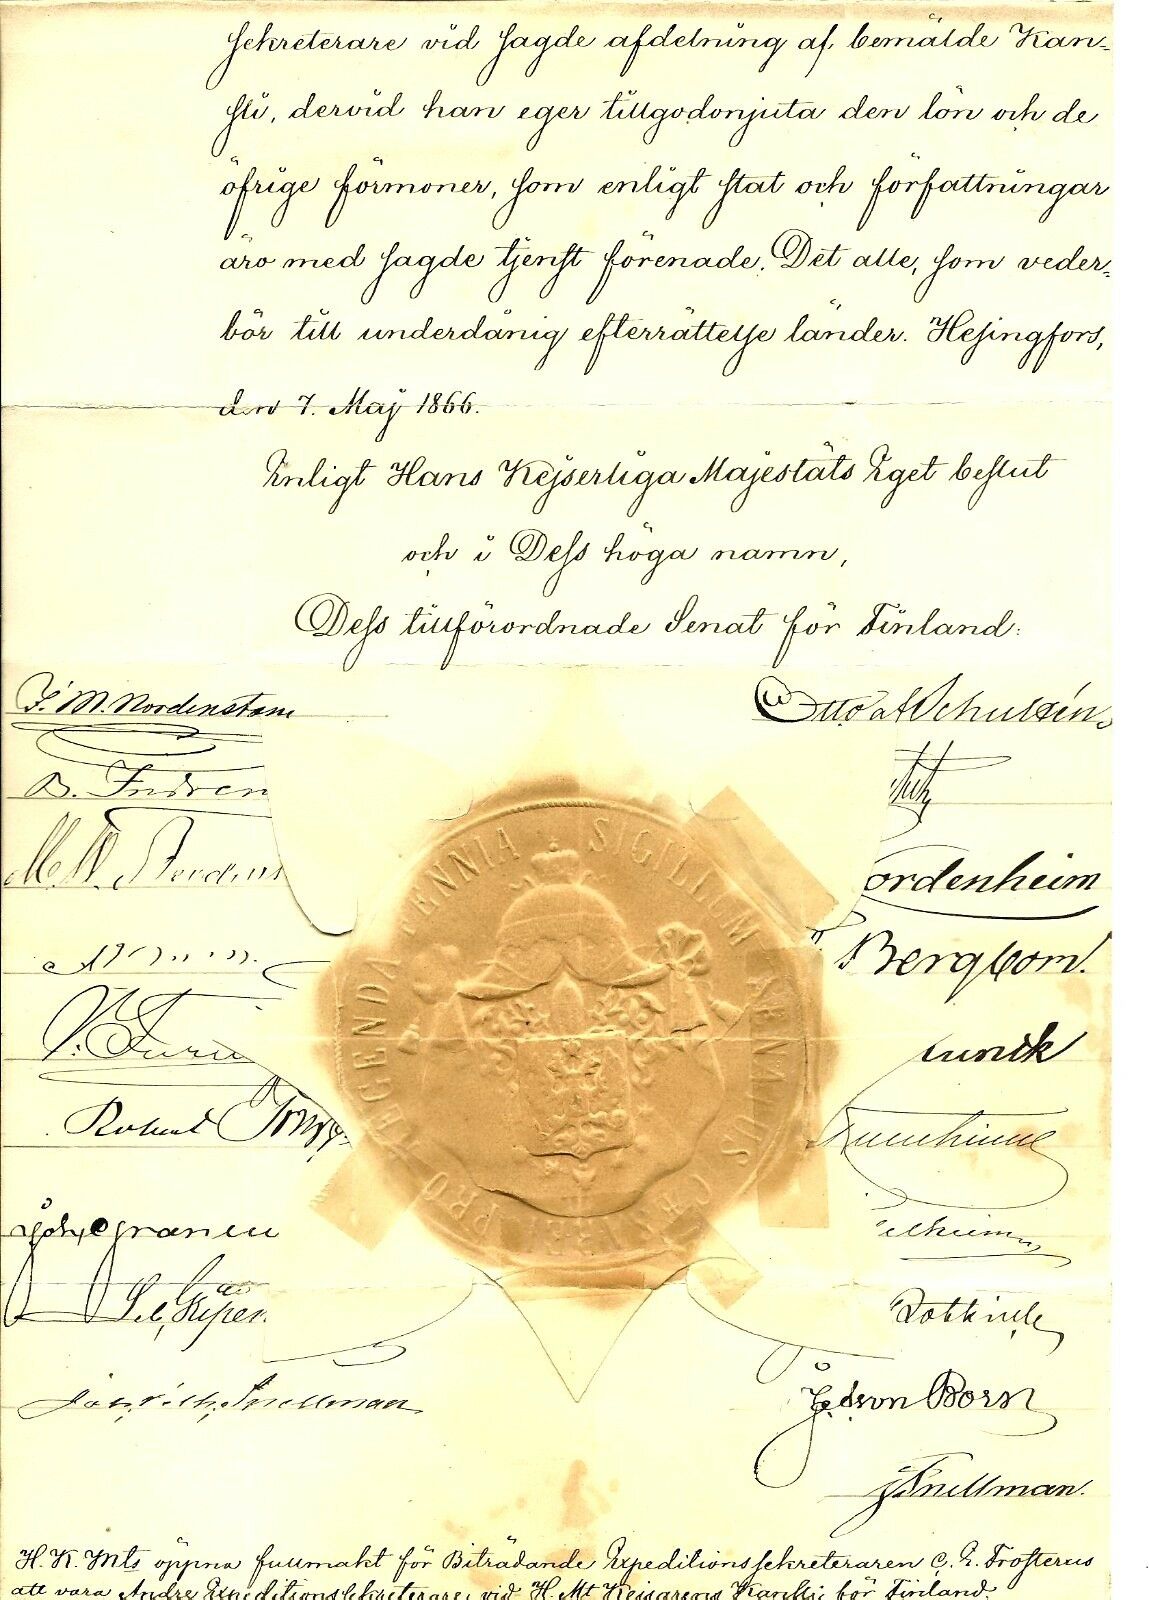 sekreterare vid sagde afdelning af bemälde Kan-
sli, dervid han eger tillgodonjuta den lön och de
öfrige förmoner, som enligt stat och författningar
äro med sagde tjenst förenade. Det alle, som veder-
bör till underdånig efterrättelse länder. Helsingfors,
den 7. Maj 1866.
Enligt Hans Kejserliga Majestäts Eget beslut
och i Dess höga namn,
Dess tillförordnade Senat för Finland:
J. M. Nordenstam
Otto af Schultén
B. Indren
ordenheim
Bergbom.
unck
V. Furu
Robert
Joh. Granlu
Joh. Vilh. Snellman
Rotkirch
V. von Born
J Snellman.
SIGILLUM SENATUS CÆS
PRO REGENDA FENNIA
H. K. Mts öppna fullmakt för Biträdande Expeditionssekreteraren C. E. Frosterus
att vara Andre Expeditionssekreterare vid H. Mt Kejsarens Kansli för Finland.